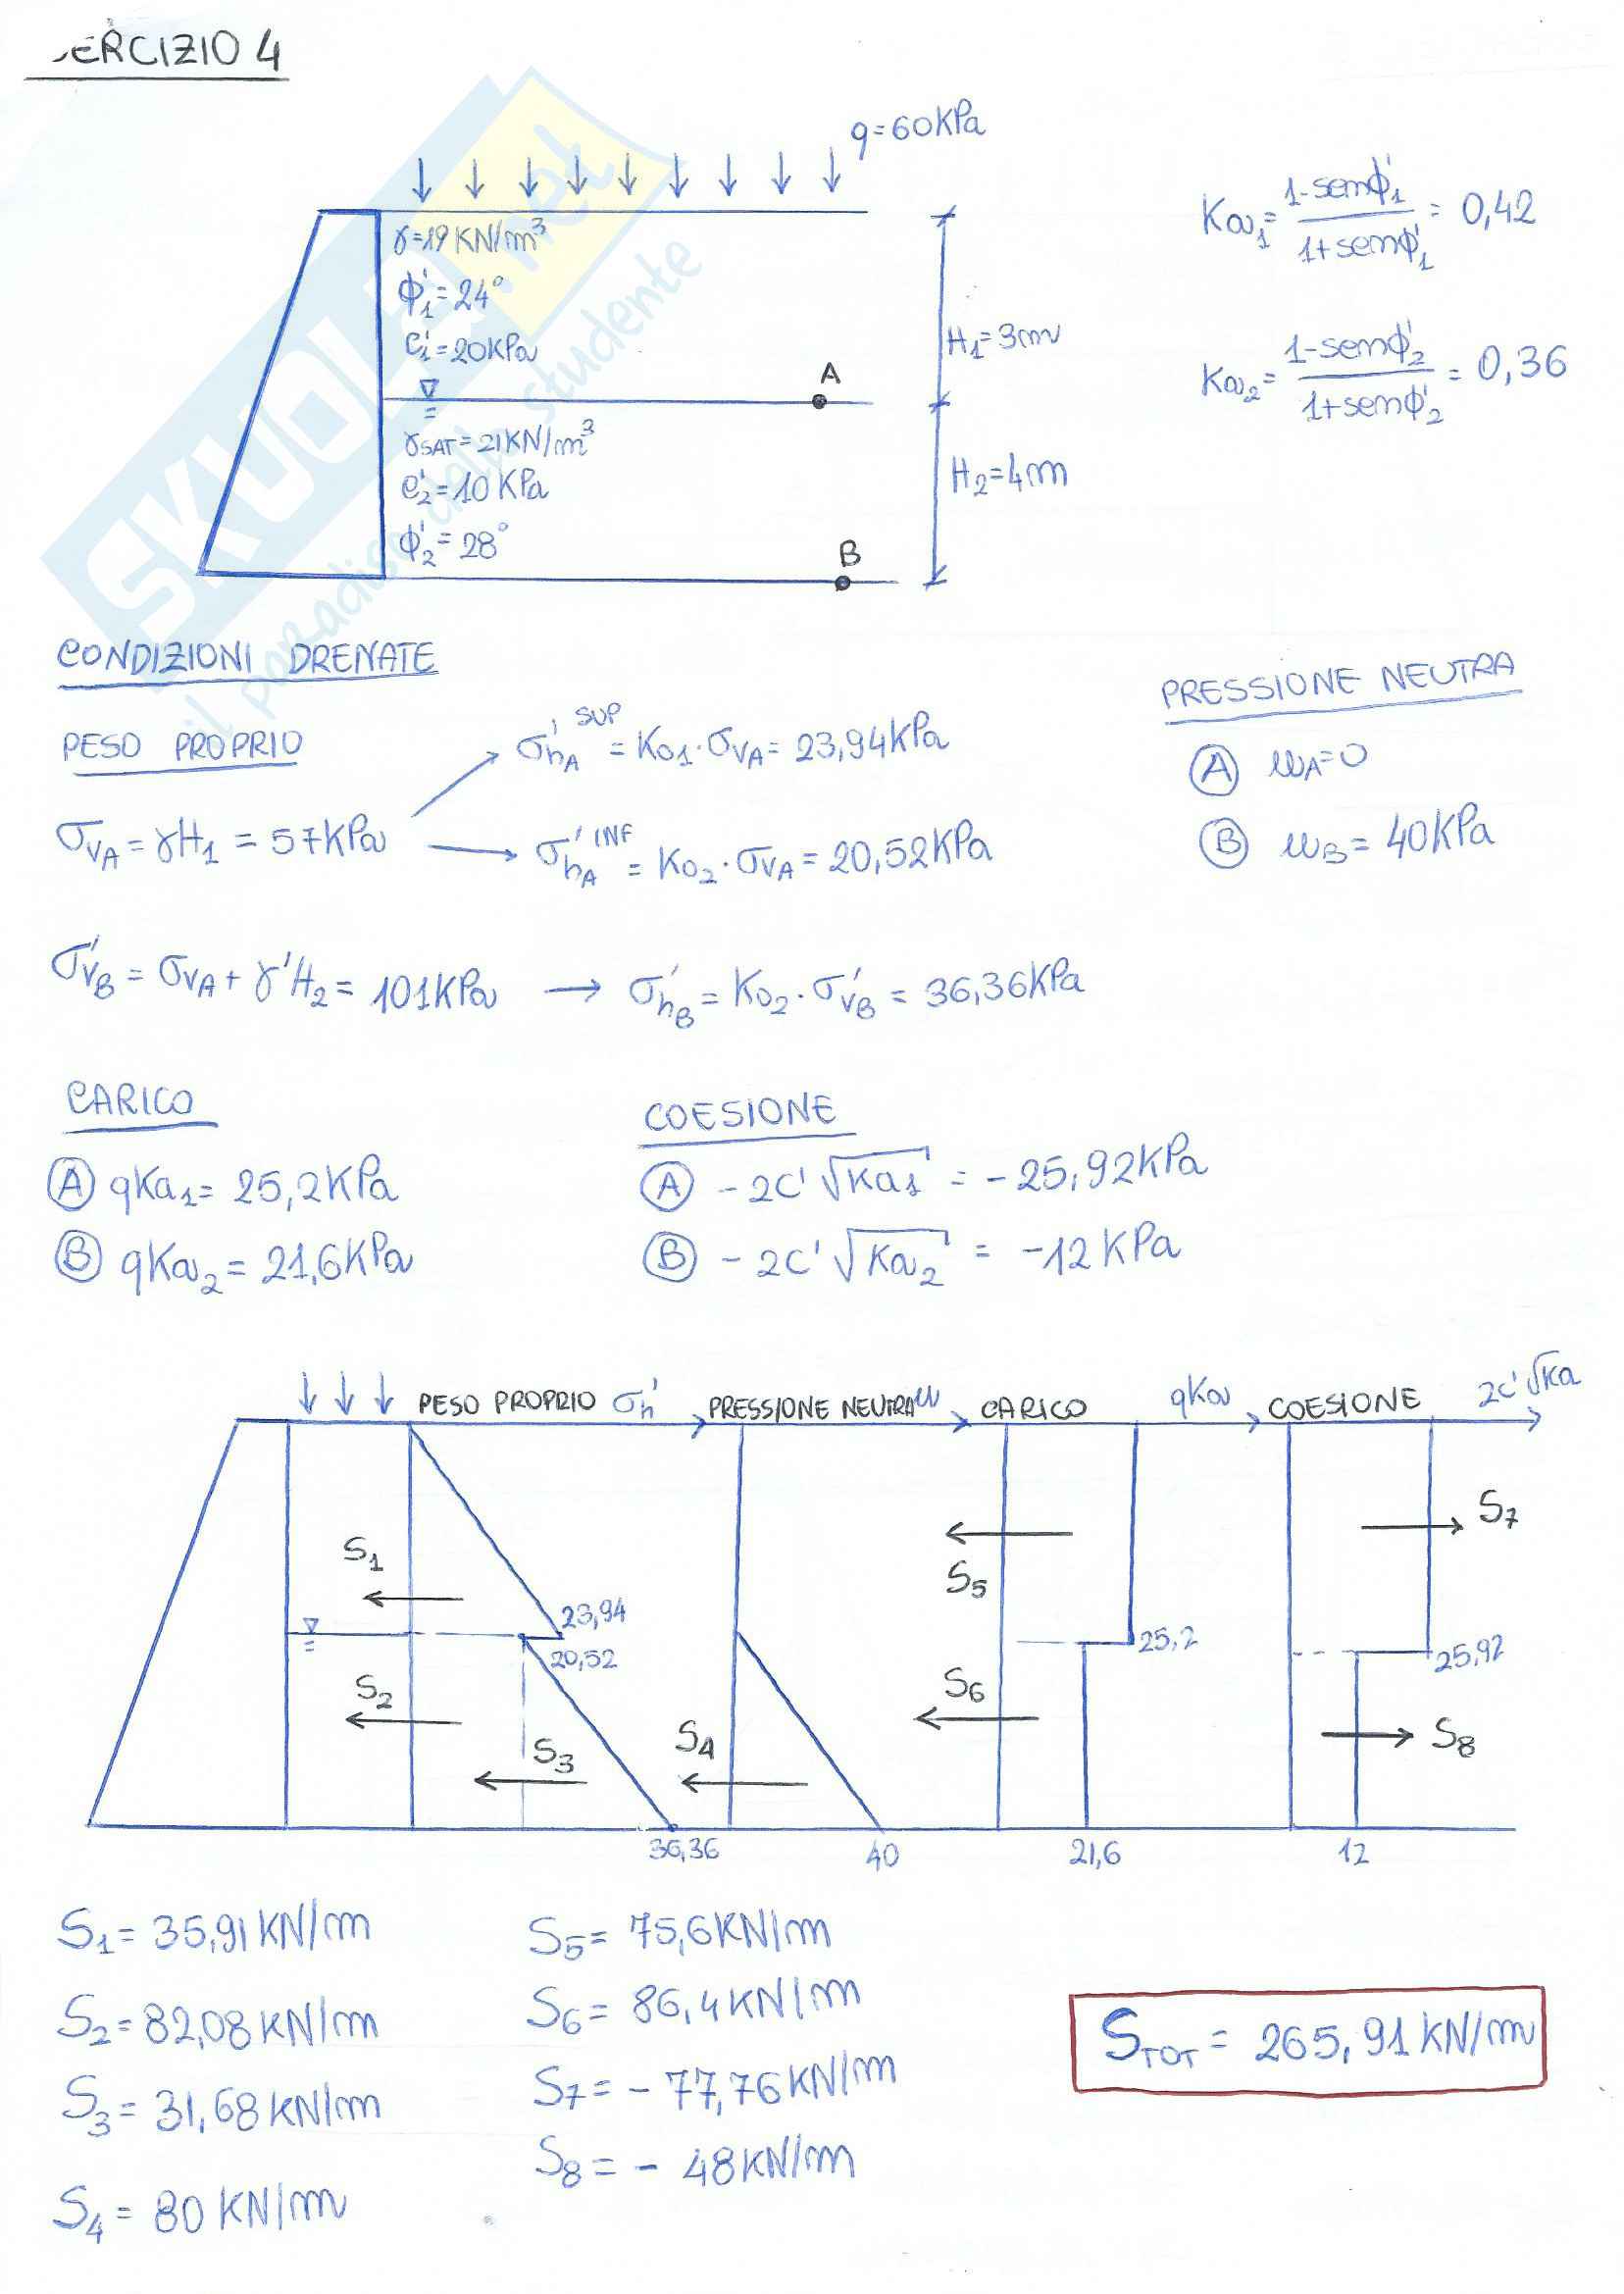 ERCIZIO 4
q=60KPa
γ=19 KN/m³
ϕ'₁=24°
c'₁=20KPa
A
γSAT=21KN/m³
c'₂=10 KPa
ϕ'₂=28°
B
H₁=3m
H₂=4m
Ka₁= 1-senϕ'₁ / 1+senϕ'₁ = 0,42
Ka₂= 1-senϕ'₂ / 1+senϕ'₂ = 0,36
SKUOLA.net
il paradiso dello studente
CONDIZIONI DRENATE
PESO PROPRIO
σvA=γH₁ = 57KPa
σ'hA SUP = K₀₁·σvA= 23,94KPa
σ'hA INF = K₀₂·σvA= 20,52KPa
σ'vB = σvA+ γ'H₂= 101KPa → σ'hB= K₀₂·σ'vB = 36,36KPa
PRESSIONE NEUTRA
A uA=0
B uB= 40KPa
CARICO
A qKa₁= 25,2KPa
B qKa₂= 21,6KPa
COESIONE
A -2c'√Ka₁ = -25,92KPa
B -2c'√Ka₂ = -12 KPa
PESO PROPRIO σ'h PRESSIONE NEUTRA u CARICO qKa COESIONE 2c'√Ka
S₁
23,94
20,52
S₂
S₃
36,36
S₄
40
S₅
25,2
S₆
21,6
S₇
25,92
S₈
12
S₁= 35,91 KN/m
S₂= 82,08 KN/m
S₃= 31,68 KN/m
S₄= 80 KN/m
S₅= 75,6KN/m
S₆= 86,4 KN/m
S₇= - 77,76 KN/m
S₈= - 48KN/m
STOT = 265,91 KN/m